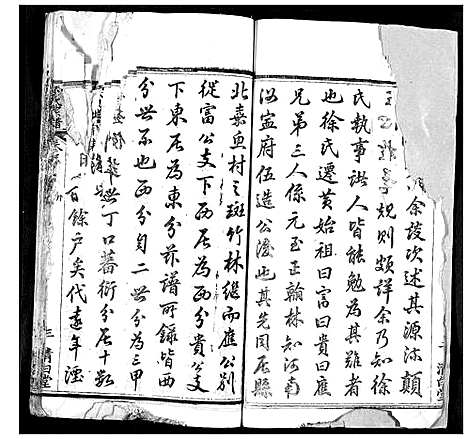 余設次述其源流顛
規則頗詳余乃知徐
氏執事諸人皆能勉為其難者
也徐氏遷黄始祖曰富曰貴曰應
兄弟三人係元至正翰林知河南
汝寧府伍造公後也其先同居縣
北嘉魚村之斑竹林繼而應公别
從富公支下西居為西分貴公支
下東居為東分茲譜所錄皆西
分世系也西分自二世分為三甲
世丁口蕃衍分居十數
百餘戶矣代遠年湮
三 清白堂
二 清白堂